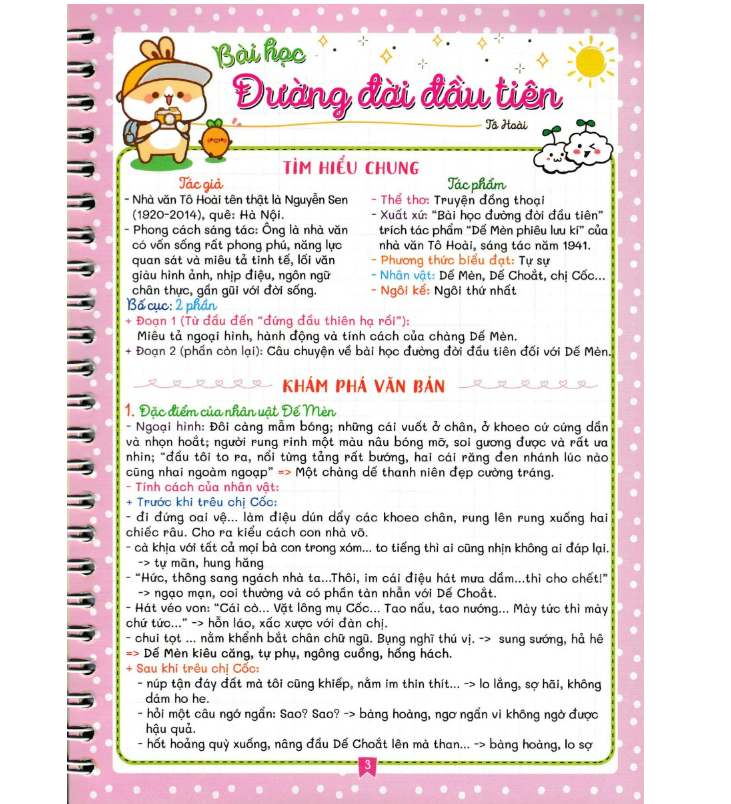 Bài học
Đường đời đầu tiên
Tô Hoài
TÌM HIỂU CHUNG
Tác giả
- Nhà văn Tô Hoài tên thật là Nguyễn Sen
(1920-2014), quê: Hà Nội.
- Phong cách sáng tác: Ông là nhà văn
có vốn sống rất phong phú, năng lực
quan sát và miêu tả tinh tế, lối văn
giàu hình ảnh, nhịp điệu, ngôn ngữ
chân thực, gần gũi với đời sống.
Tác phẩm
- Thể thơ: Truyện đồng thoại
- Xuất xứ: "Bài học đường đời đầu tiên"
trích tác phẩm "Dế Mèn phiêu lưu kí" của
nhà văn Tô Hoài, sáng tác năm 1941.
- Phương thức biểu đạt: Tự sự
- Nhân vật: Dế Mèn, Dế Choắt, chị Cốc...
- Ngôi kể: Ngôi thứ nhất
Bố cục: 2 phần
+ Đoạn 1 (Từ đầu đến "đứng đầu thiên hạ rồi"):
Miêu tả ngoại hình, hành động và tính cách của chàng Dế Mèn.
+ Đoạn 2 (phần còn lại): Câu chuyện về bài học đường đời đầu tiên đối với Dế Mèn.
KHÁM PHÁ VĂN BẢN
1. Đặc điểm của nhân vật Dế Mèn
- Ngoại hình: Đôi càng mẫm bóng; những cái vuốt ở chân, ở khoeo cứ cứng dần
và nhọn hoắt; người rung rinh một màu nâu bóng mỡ, soi gương được và rất ưa
nhìn; "đầu tôi to ra, nổi từng tảng rất bướng, hai cái răng đen nhánh lúc nào
cũng nhai ngoàm ngoạp" => Một chàng dế thanh niên đẹp cường tráng.
- Tính cách của nhân vật:
+ Trước khi trêu chị Cốc:
- đi đứng oai vệ... làm điệu dún dẩy các khoeo chân, rung lên rung xuống hai
chiếc râu. Cho ra kiểu cách con nhà võ.
- cà khịa với tất cả mọi bà con trong xóm... to tiếng thì ai cũng nhịn không ai đáp lại.
-> tự mãn, hung hăng
- "Hức, thông sang ngách nhà ta...Thôi, im cái điệu hát mưa dầm...thì cho chết!"
-> ngạo mạn, coi thường và có phần tàn nhẫn với Dế Choắt.
- Hát véo von: "Cái cò... Vặt lông mụ Cốc... Tao nấu, tao nướng... Mày tức thì mày
chứ tức..." -> hỗn láo, xấc xược với đàn chị.
- chui tọt ... nằm khểnh bắt chân chữ ngũ. Bụng nghĩ thú vị. -> sung sướng, hả hê
=> Dế Mèn kiêu căng, tự phụ, ngông cuồng, hống hách.
+ Sau khi trêu chị Cốc:
- núp tận đáy đất mà tôi cũng khiếp, nằm im thin thít... -> lo lắng, sợ hãi, không
dám ho he.
- hỏi một câu ngớ ngẩn: Sao? Sao? -> bàng hoàng, ngơ ngẩn vì không ngờ được
hậu quả.
- hốt hoảng quỳ xuống, nâng đầu Dế Choắt lên mà than... -> bàng hoàng, lo sợ
3